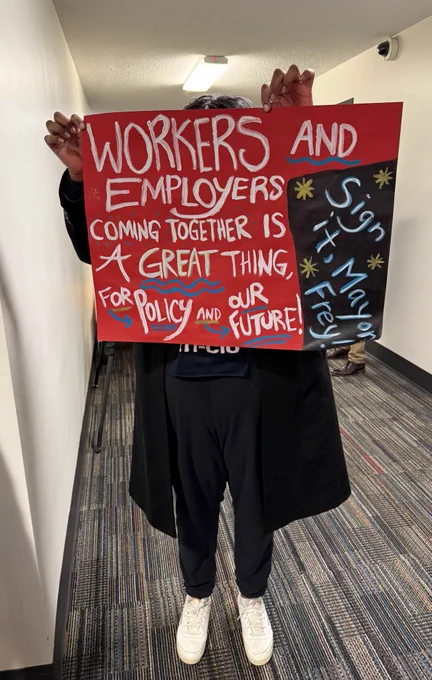 WORKERS AND
EMPLOYERS
COMING TOGETHER IS
A GREAT THING,
FOR POLICY AND OUR
FUTURE!
Sign
it, Mayor
Frey!